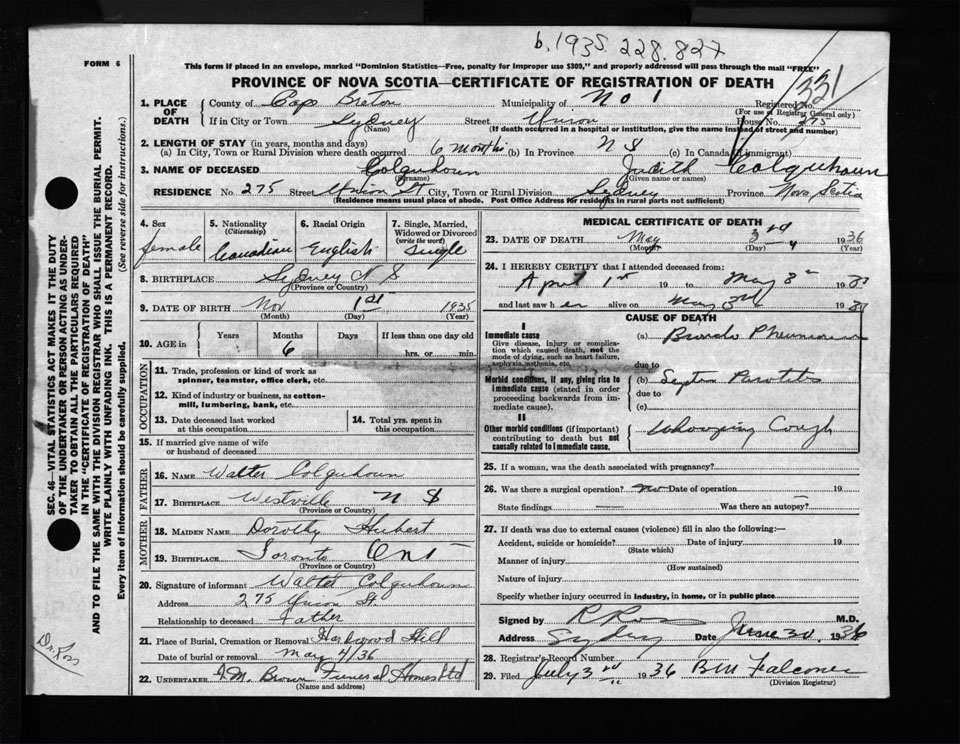 b. 1935. 228.827
FORM 6
This form if placed in an envelope, marked "Dominion Statistics—Free, penalty for improper use $300, and properly addressed will pass through the mail "FREE"
PROVINCE OF NOVA SCOTIA—CERTIFICATE OF REGISTRATION OF DEATH
331
1. PLACE OF DEATH
County of Cape Breton Municipality of No 1 Registered No.
(For use of Registrar General only)
If in City or Town Sydney Street Union House No. 275
(Name) (If death occurred in a hospital or institution, give the name instead of street and number)
2. LENGTH OF STAY (in years, months and days)
(a) In City, Town or Rural Division where death occurred 6 months (b) In Province N S (c) In Canada (if immigrant)
3. NAME OF DECEASED Colquhoun Judith Colquhoun
(Surname) (Given name or names)
RESIDENCE No. 275 Street Union St City, Town or Rural Division Sydney Province Nova Scotia
(Residence means usual place of abode. Post Office Address for residents in rural parts not sufficient)
4. Sex female
5. Nationality (Citizenship) Canadian
6. Racial Origin English
7. Single, Married, Widowed or Divorced (write the word) Single
8. BIRTHPLACE Sydney N S
(Province or Country)
9. DATE OF BIRTH Nov 1st 1935
(Month) (Day) (Year)
10. AGE in
Years Months Days If less than one day old
6 hrs. or min.
OCCUPATION
11. Trade, profession or kind of work as spinner, teamster, office clerk, etc.
12. Kind of industry or business, as cotton-mill, lumbering, bank, etc.
13. Date deceased last worked at this occupation
14. Total yrs. spent in this occupation
15. If married give name of wife or husband of deceased
FATHER
16. NAME Walter Colquhoun
17. BIRTHPLACE Westville N S
MOTHER
18. MAIDEN NAME Dorothy Hubert
19. BIRTHPLACE Toronto Ont
(Province or Country)
20. Signature of informant Walter Colquhoun
Address 275 Union St.
Relationship to deceased Father
21. Place of Burial, Cremation or Removal Hardwood Hill
Date of burial or removal May 4/36
22. UNDERTAKER A.M. Brown Funeral Homes Ltd
(Name and address)
MEDICAL CERTIFICATE OF DEATH
23. DATE OF DEATH May 3rd 1936
(Month) (Day) (Year)
24. I HEREBY CERTIFY that I attended deceased from:
April 1st 19 to May 3rd 19
and last saw her alive on May 3rd 19
CAUSE OF DEATH
I
Immediate cause
Give disease, injury or complication which caused death, not the mode of dying, such as heart failure, asphyxia, asthenia, etc.
(a) Broncho Pneumonia
due to
Morbid conditions, if any, giving rise to immediate cause (stated in order proceeding backwards from immediate cause).
(b) Septic Parotitis
due to
(c)
II
Other morbid conditions (if important) contributing to death but not causally related to immediate cause.
Whooping Cough
25. If a woman, was the death associated with pregnancy?
26. Was there a surgical operation? no Date of operation 19
State findings Was there an autopsy?
27. If death was due to external causes (violence) fill in also the following:—
Accident, suicide or homicide? Date of injury 19
(State which)
Manner of injury
(How sustained)
Nature of injury
Specify whether injury occurred in industry, in home, or in public place
Signed by R Ross M.D.
Address Sydney Date June 30, 1936
28. Registrar's Record Number
29. Filed July 3rd 1936 BM Falconer
(Division Registrar)
SEC. 46—VITAL STATISTICS ACT MAKES IT THE DUTY
OF THE UNDERTAKER OR PERSON ACTING AS UNDER-
TAKER TO OBTAIN ALL THE PARTICULARS REQUIRED
IN THE "CERTIFICATE OF REGISTRATION OF DEATH"
AND TO FILE THE SAME WITH THE DIVISION REGISTRAR WHO SHALL ISSUE THE BURIAL PERMIT.
WRITE PLAINLY WITH UNFADING INK. THIS IS A PERMANENT RECORD.
Every item of information should be carefully supplied. (See reverse side for instructions.)
Dr. Ross